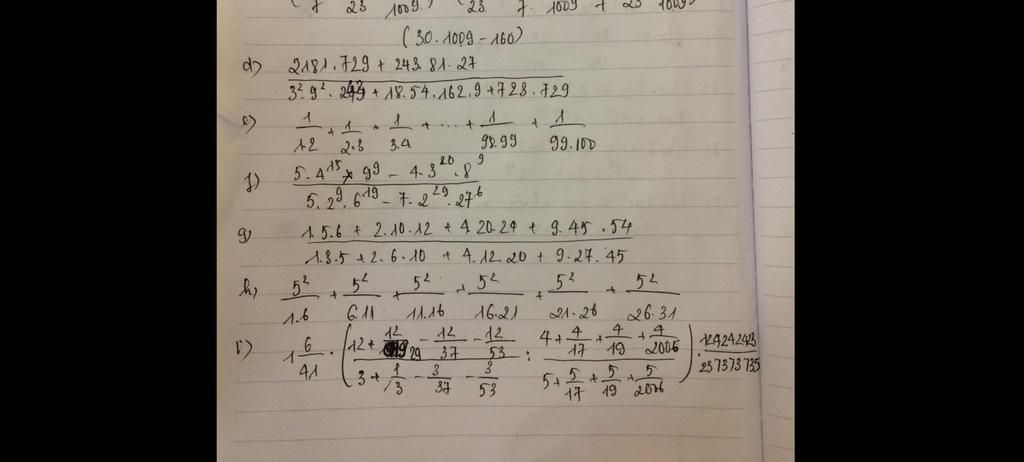 (30.1009-160)
d) (2181.729 + 243.81.27)/(3².9².243 + 18.54.162.9 + 723.729)
e) 1/1.2 + 1/2.3 + 1/3.4 + ... + 1/98.99 + 1/99.100
f) (5.4¹⁵ × 9⁹ - 4.3²⁰.8⁹)/(5.2⁹.6¹⁹ - 7.2²⁹.27⁶)
g) (1.5.6 + 2.10.12 + 4.20.24 + 9.45.54)/(1.3.5 + 2.6.10 + 4.12.20 + 9.27.45)
h) 5²/1.6 + 5²/6.11 + 5²/11.16 + 5²/16.21 + 5²/21.26 + 5²/26.31
i) 1 6/41 . ((12 + 12/29 - 12/37 - 12/53)/(3 + 1/3 - 3/37 - 3/53) : (4 + 4/17 + 4/19 + 4/2006)/(5 + 5/17 + 5/19 + 5/2006)) . 124242423/237373735